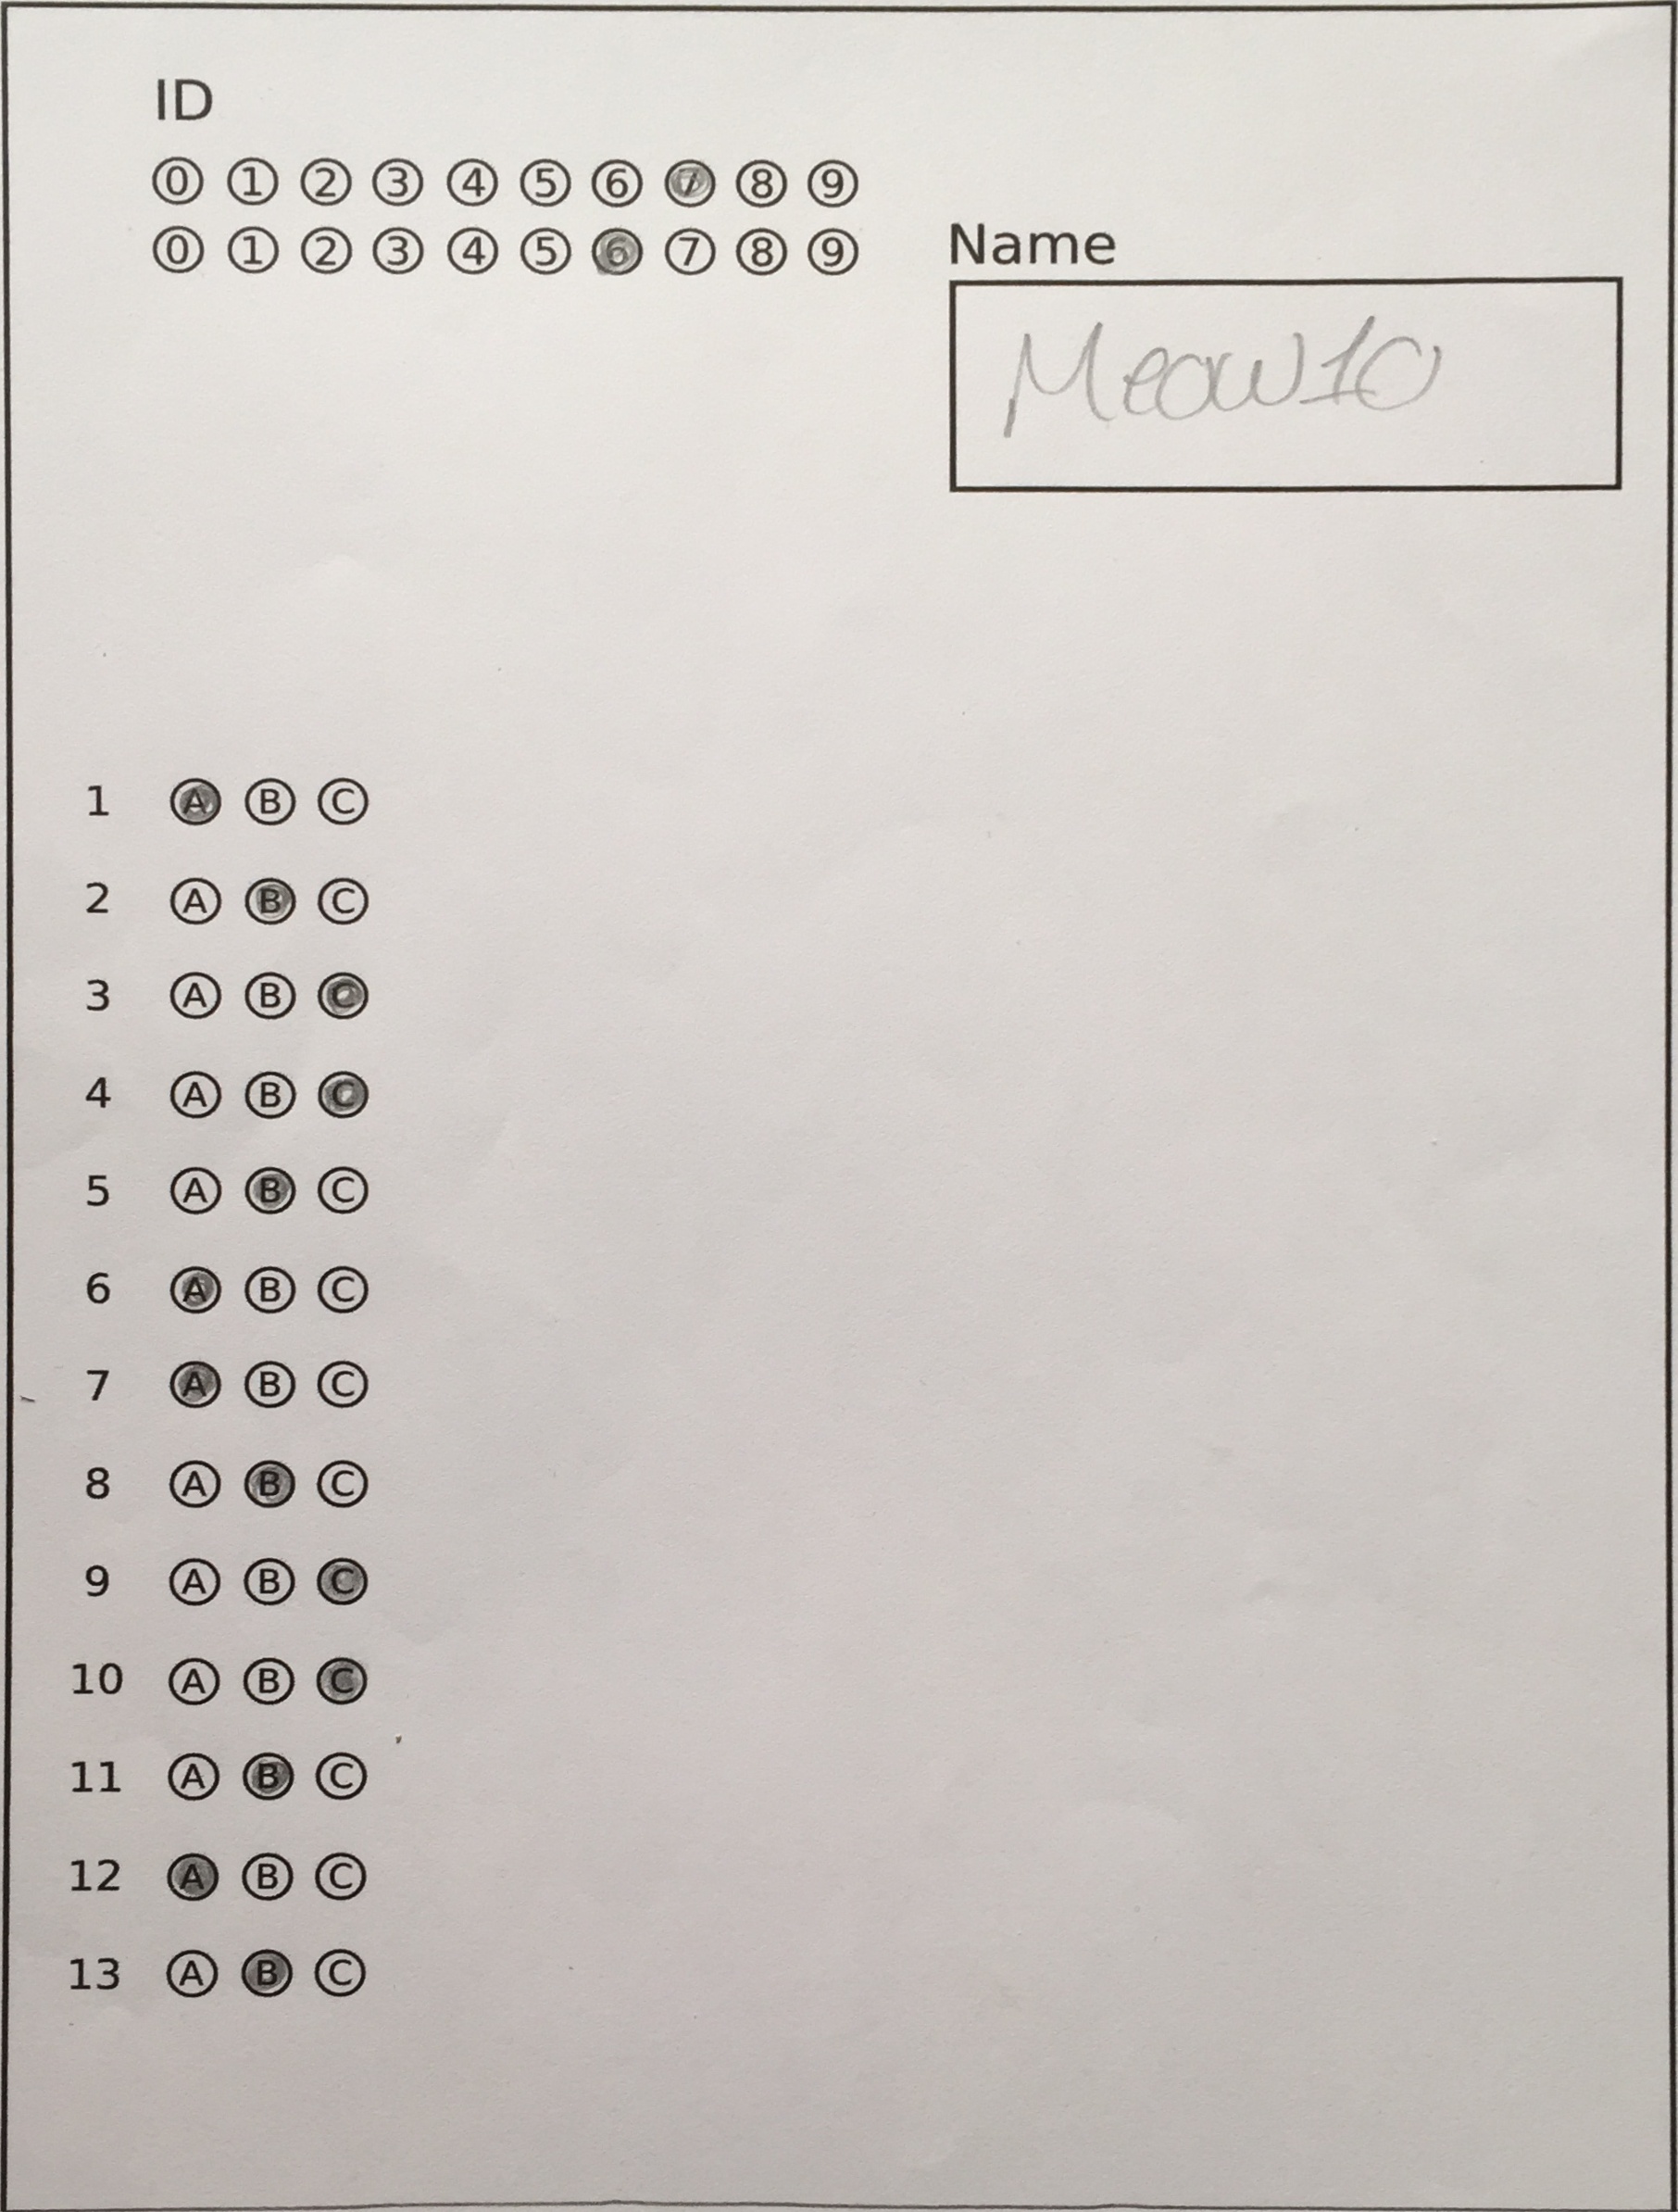 ID
0 1 2 3 4 5 6 7 8 9
0 1 2 3 4 5 6 7 8 9
Name
Meow10
1 A B C
2 A B C
3 A B C
4 A B C
5 A B C
6 A B C
7 A B C
8 A B C
9 A B C
10 A B C
11 A B C
12 A B C
13 A B C